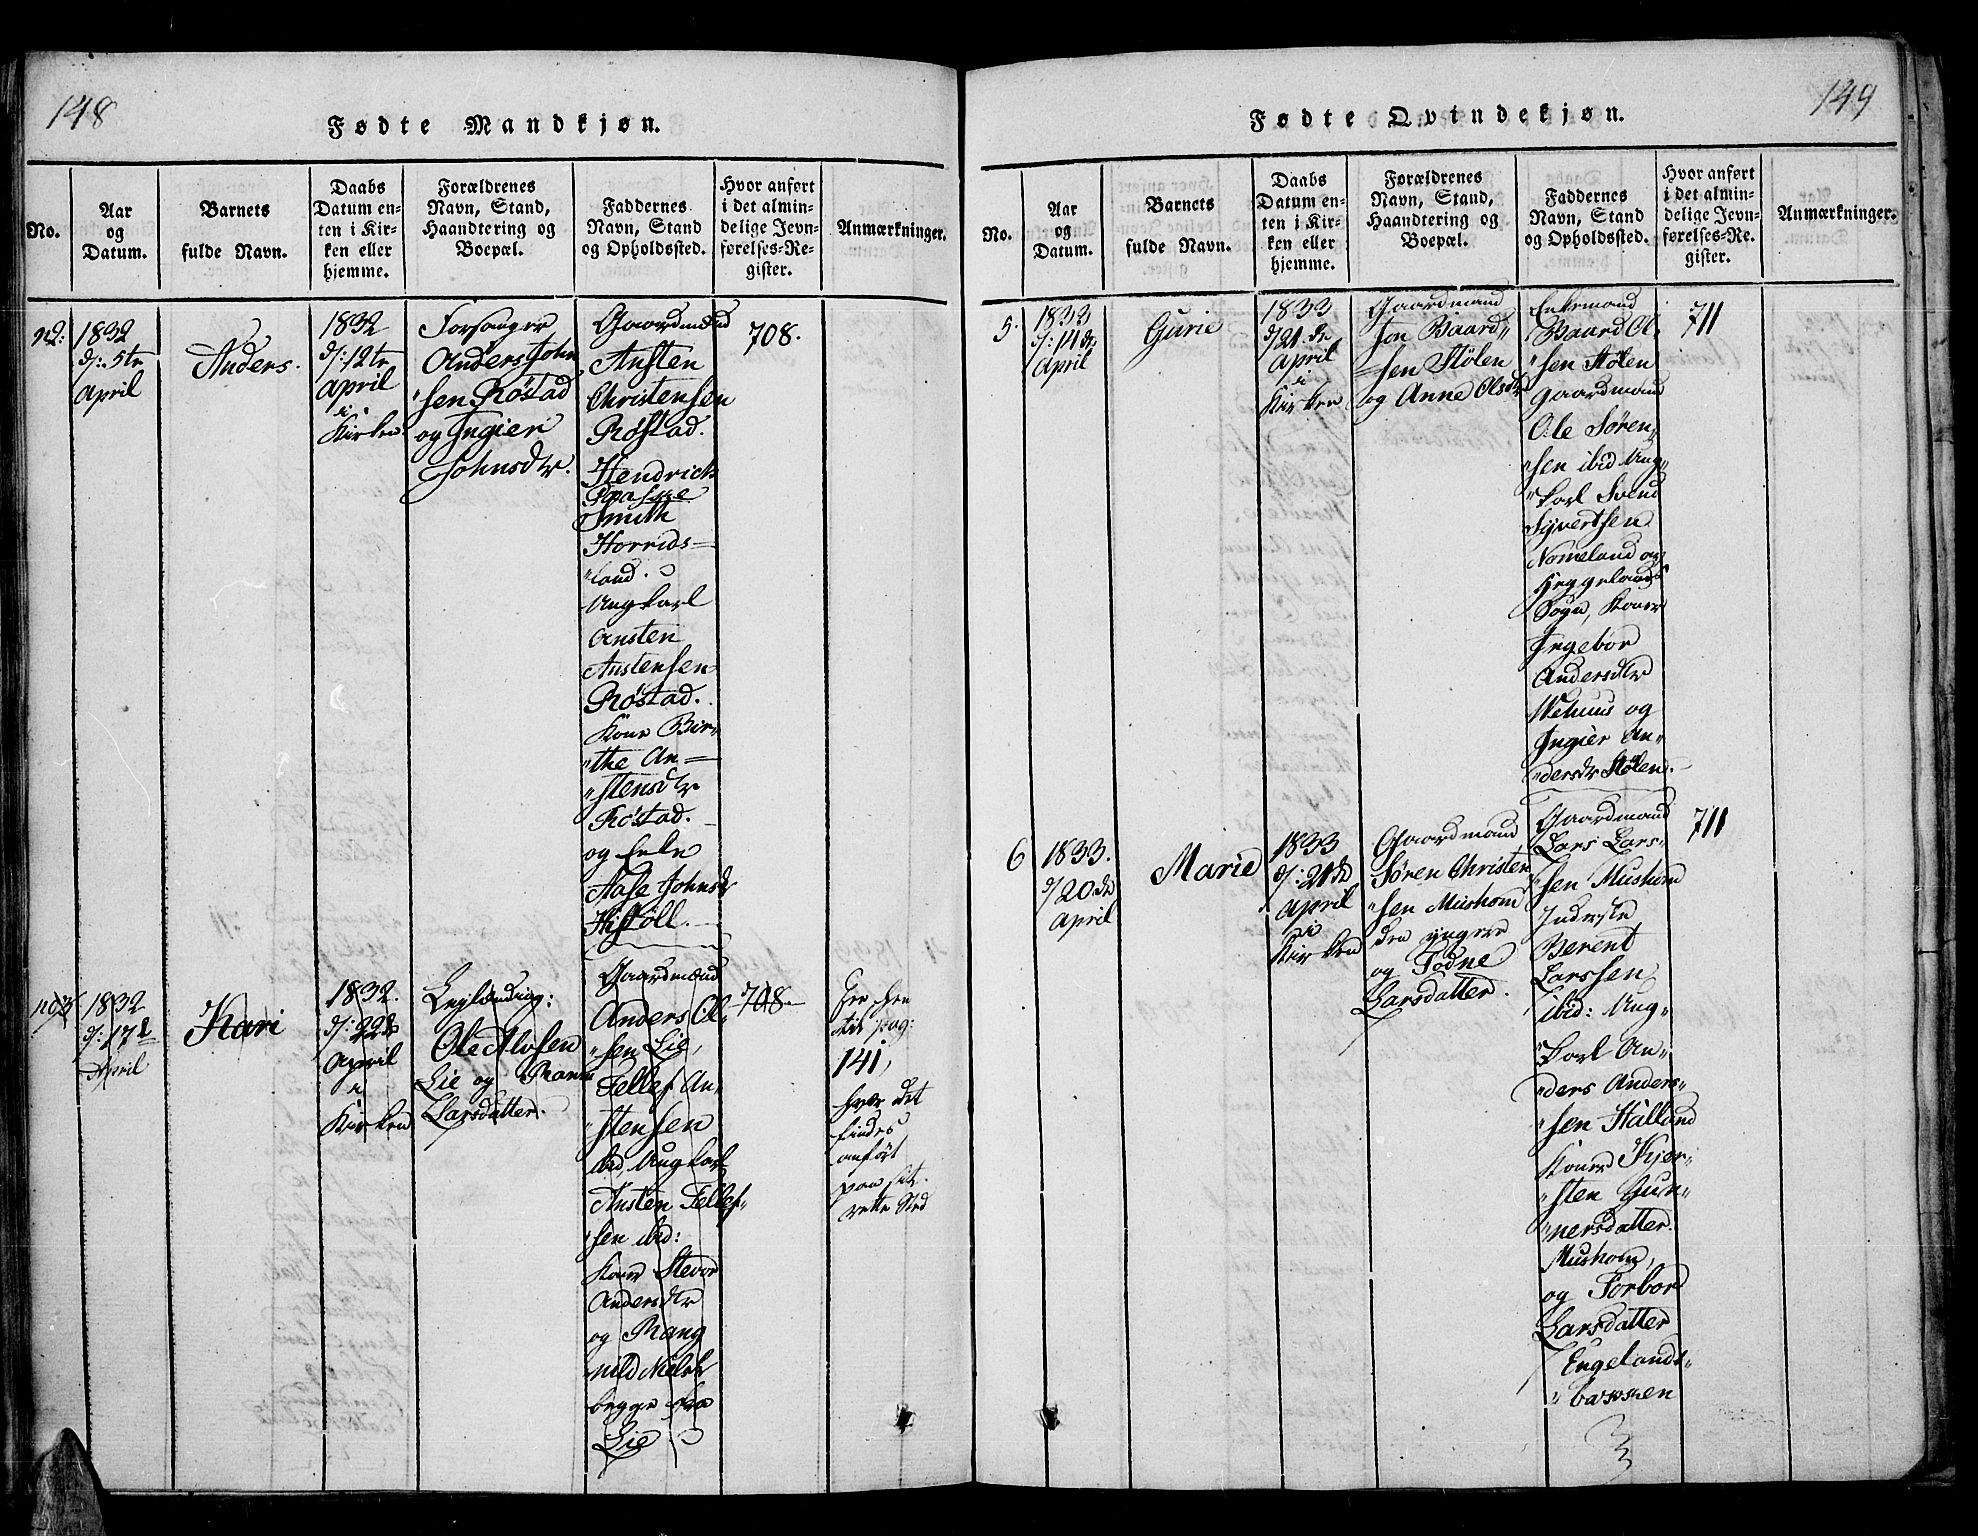 148
Fødte Mandkjøn.
No.
Aar
og
Datum.
Barnets
fulde Navn.
Daabs
Datum en-
ten i Kir-
ken eller
hjemme.
Forældrenes
Navn, Stand,
Haandtering og
Boepæl.
Faddernes
Navn, Stand
og Opholdssted.
Hvor anført
i det almin-
delige Jevn-
førelses-Re-
gister.
Anmærkninger.
1832
d: 5te
April
Anders.
1832
d: 12te
April
i
Kirken
Forsanger
Anders John
"sen Røstad
og Ingier
Johnsdtr.
Gaardmænd
Ansten
Christensen
Røstad.
Hendrich
Smith
Horrids-
"land.
Ungkarl
Ansten
Anstensen
Røstad.
Kone Bir-
"the An-
"stensdtr
Røstad.
og
Aase Johnsdr
Histöll.
708.
1832
d: 17d
April
Kari
1832.
d: 22d
April
i
Kirken
Ole Alvsen
Lie og
Larsdatter.
Gaardmænd
Anders Ol-
"sen Lie,
Tellef An-
"stensen
ibd, Ungkarl
Ansten Tellef-
sen ibd:
Kone Stevor
Andersdtr
og Rang
nild Nielsdr
begge fra
Lie
708
141,
hvor det
findes
anført
paa sit
rette Sted
149
Fødte Qvindekjøn.
No.
Aar
og
Datum.
Barnets
fulde Navn.
Daabs
Datum en-
ten i Kir-
ken eller
hjemme.
Forældrenes
Navn, Stand,
Haandtering og
Boepæl.
Faddernes
Navn, Stand
og Opholdssted.
Hvor anført
i det almin-
delige Jevn-
førelses-Re-
gister.
Anmærkninger.
5.
1833
d: 14de
April
Gurie
1833
d/21 de
April
i
Kirken
Gaardmand
Jon Baard"
"sen Stølen
og Anne Olsdtr
Enkemand
Baard Ol-
"sen Stølen
Gaardmand
Ole Søren"
"sen ibid Ung"
"karl Svend
Syvertsen
Nomeland og
Heggelands
Sogn, Koner
Ingebor
Andersdtr
Wehuus og
Ingier An"
"dersdr Stølen.
711
6
1833.
d/20de
April
Marie
1833
d: 21de
April
i
Kirken
Gaardmand
Søren Christen
"sen Mushom
den yngere
og Todne
Larsdatter.
Gaardmand
Lars Lars-
"sen Mushom
Inderste
Berent
Larssen
ibid: Ung-
"karl An-
"ders Anders-
"sen Hålland
Koner Kjer-
"sten Gun-
"nersdatter
Mushom,
og Torbor
Larsdatter
Engelands"
"backken
711